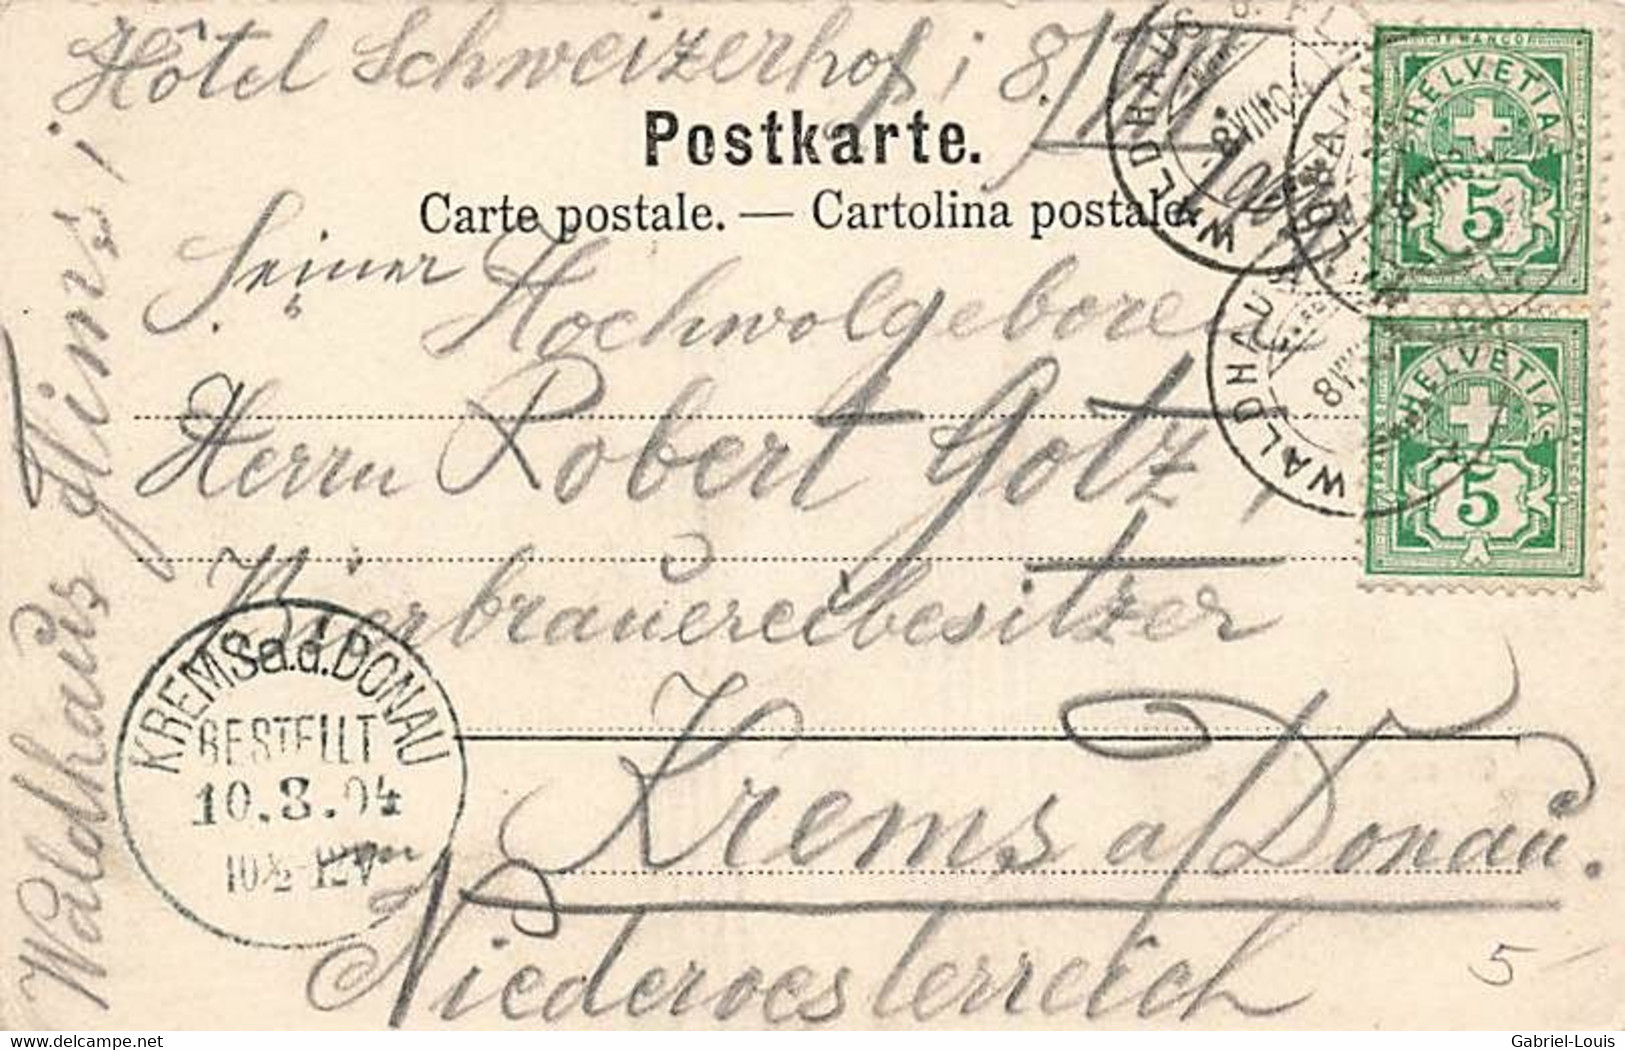 Hôtel Schweizerhof, 8/VIII
Postkarte.
Carte postale. — Cartolina postale.
Seiner
Hochwolgeboren
Herrn Robert Götz,
Bierbrauereibesitzer
Krems a/Donau.
Niederoesterreich
Waldhaus Flims,
WALDHAUS B. FL
8 VIII 04
WALDHAU
8 VIII
HELVETIA
5
HELVETIA
5
KREMS a.d. DONAU
BESTELLT
10.8.04
10½-12V
5
delcampe.net
Gabriel-Louis